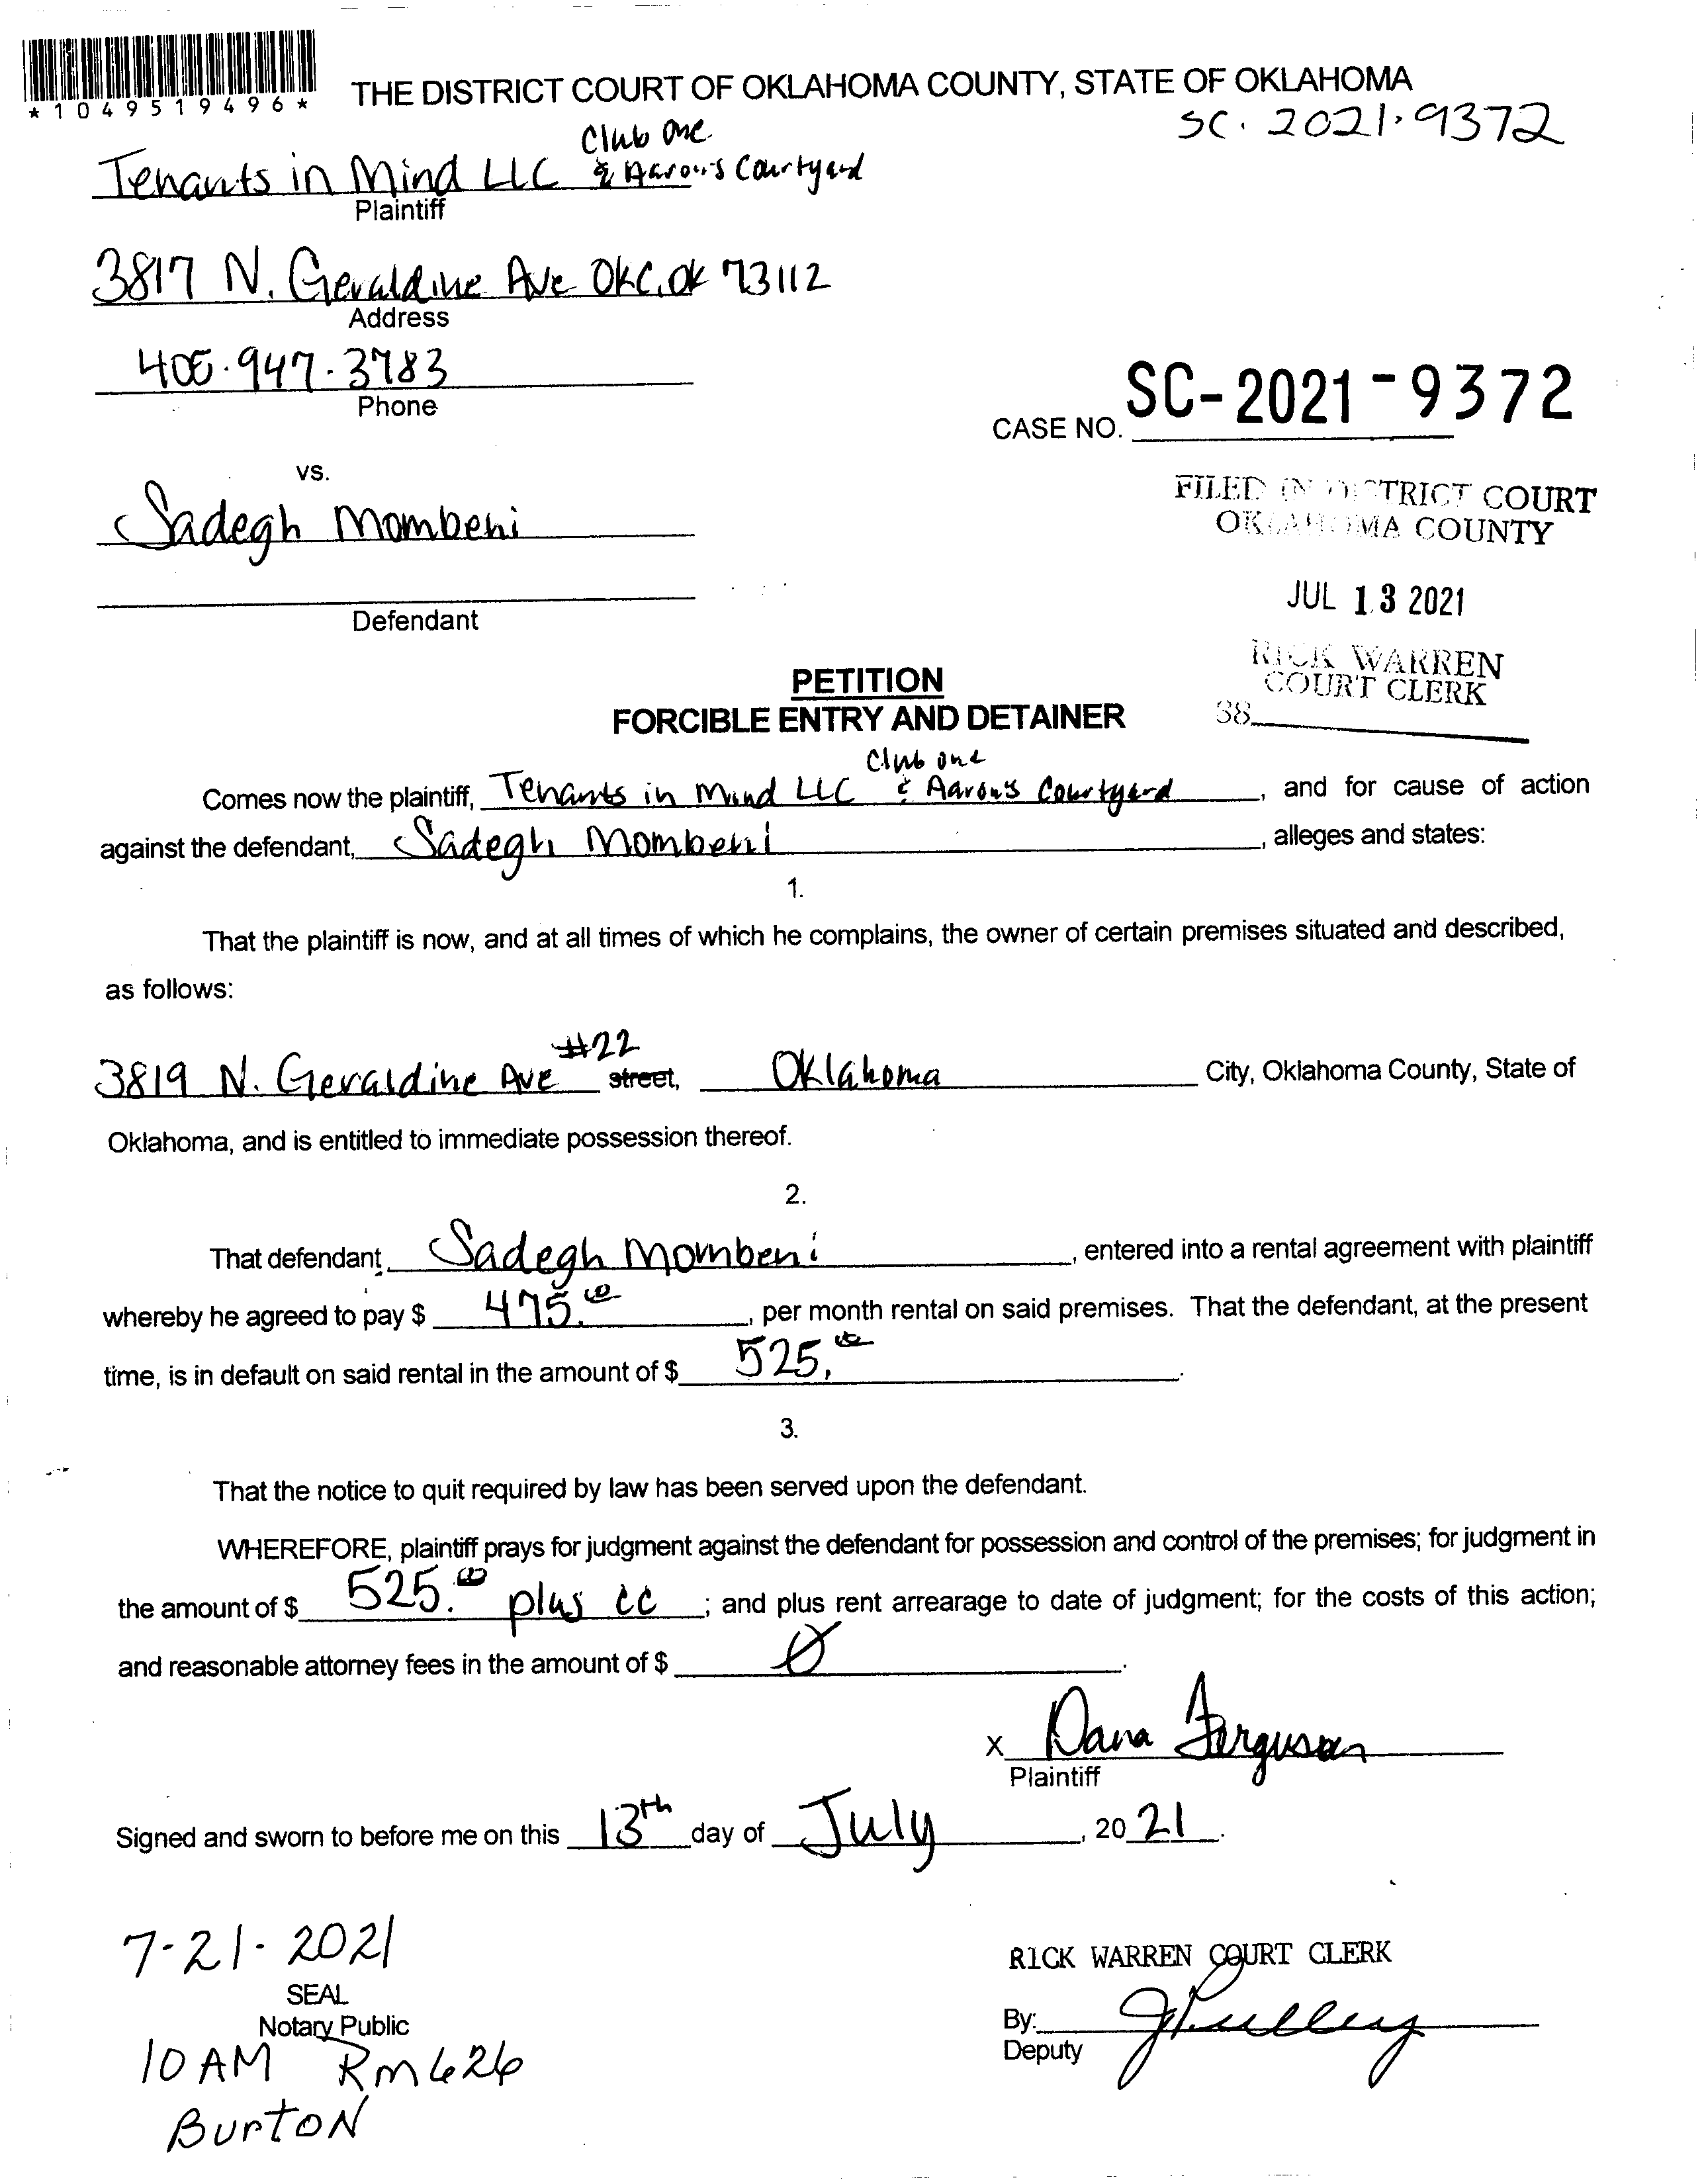 *1049519496*
THE DISTRICT COURT OF OKLAHOMA COUNTY, STATE OF OKLAHOMA
SC. 2021-9372
Club One
Tenants in Mind LLC & Aaron's Courtyard
Plaintiff
3817 N. Geraldine Ave OKC, OK 73112
Address
405.947.3783
Phone
CASE NO. SC-2021-9372
vs.
FILED IN DISTRICT COURT
OKLAHOMA COUNTY
Sadegh Mombeni
JUL 13 2021
Defendant
RICK WARREN
COURT CLERK
38
PETITION
FORCIBLE ENTRY AND DETAINER
Club One
Comes now the plaintiff, Tenants in Mind LLC & Aaron's Courtyard, and for cause of action
against the defendant, Sadegh Mombeni, alleges and states:
1.
That the plaintiff is now, and at all times of which he complains, the owner of certain premises situated and described,
as follows:
#22
3819 N. Geraldine Ave street, Oklahoma City, Oklahoma County, State of
Oklahoma, and is entitled to immediate possession thereof.
2.
That defendant, Sadegh Mombeni, entered into a rental agreement with plaintiff
whereby he agreed to pay $ 475.00, per month rental on said premises. That the defendant, at the present
time, is in default on said rental in the amount of $ 525.00.
3.
That the notice to quit required by law has been served upon the defendant.
WHEREFORE, plaintiff prays for judgment against the defendant for possession and control of the premises; for judgment in
the amount of $ 525.00 plus cc; and plus rent arrearage to date of judgment; for the costs of this action;
and reasonable attorney fees in the amount of $ 0.
X Dana Ferguson
Plaintiff
Signed and sworn to before me on this 13th day of July, 20 21.
7-21-2021
SEAL
Notary Public
10 AM Rm 626
Burton
RICK WARREN COURT CLERK
By: JPulley
Deputy